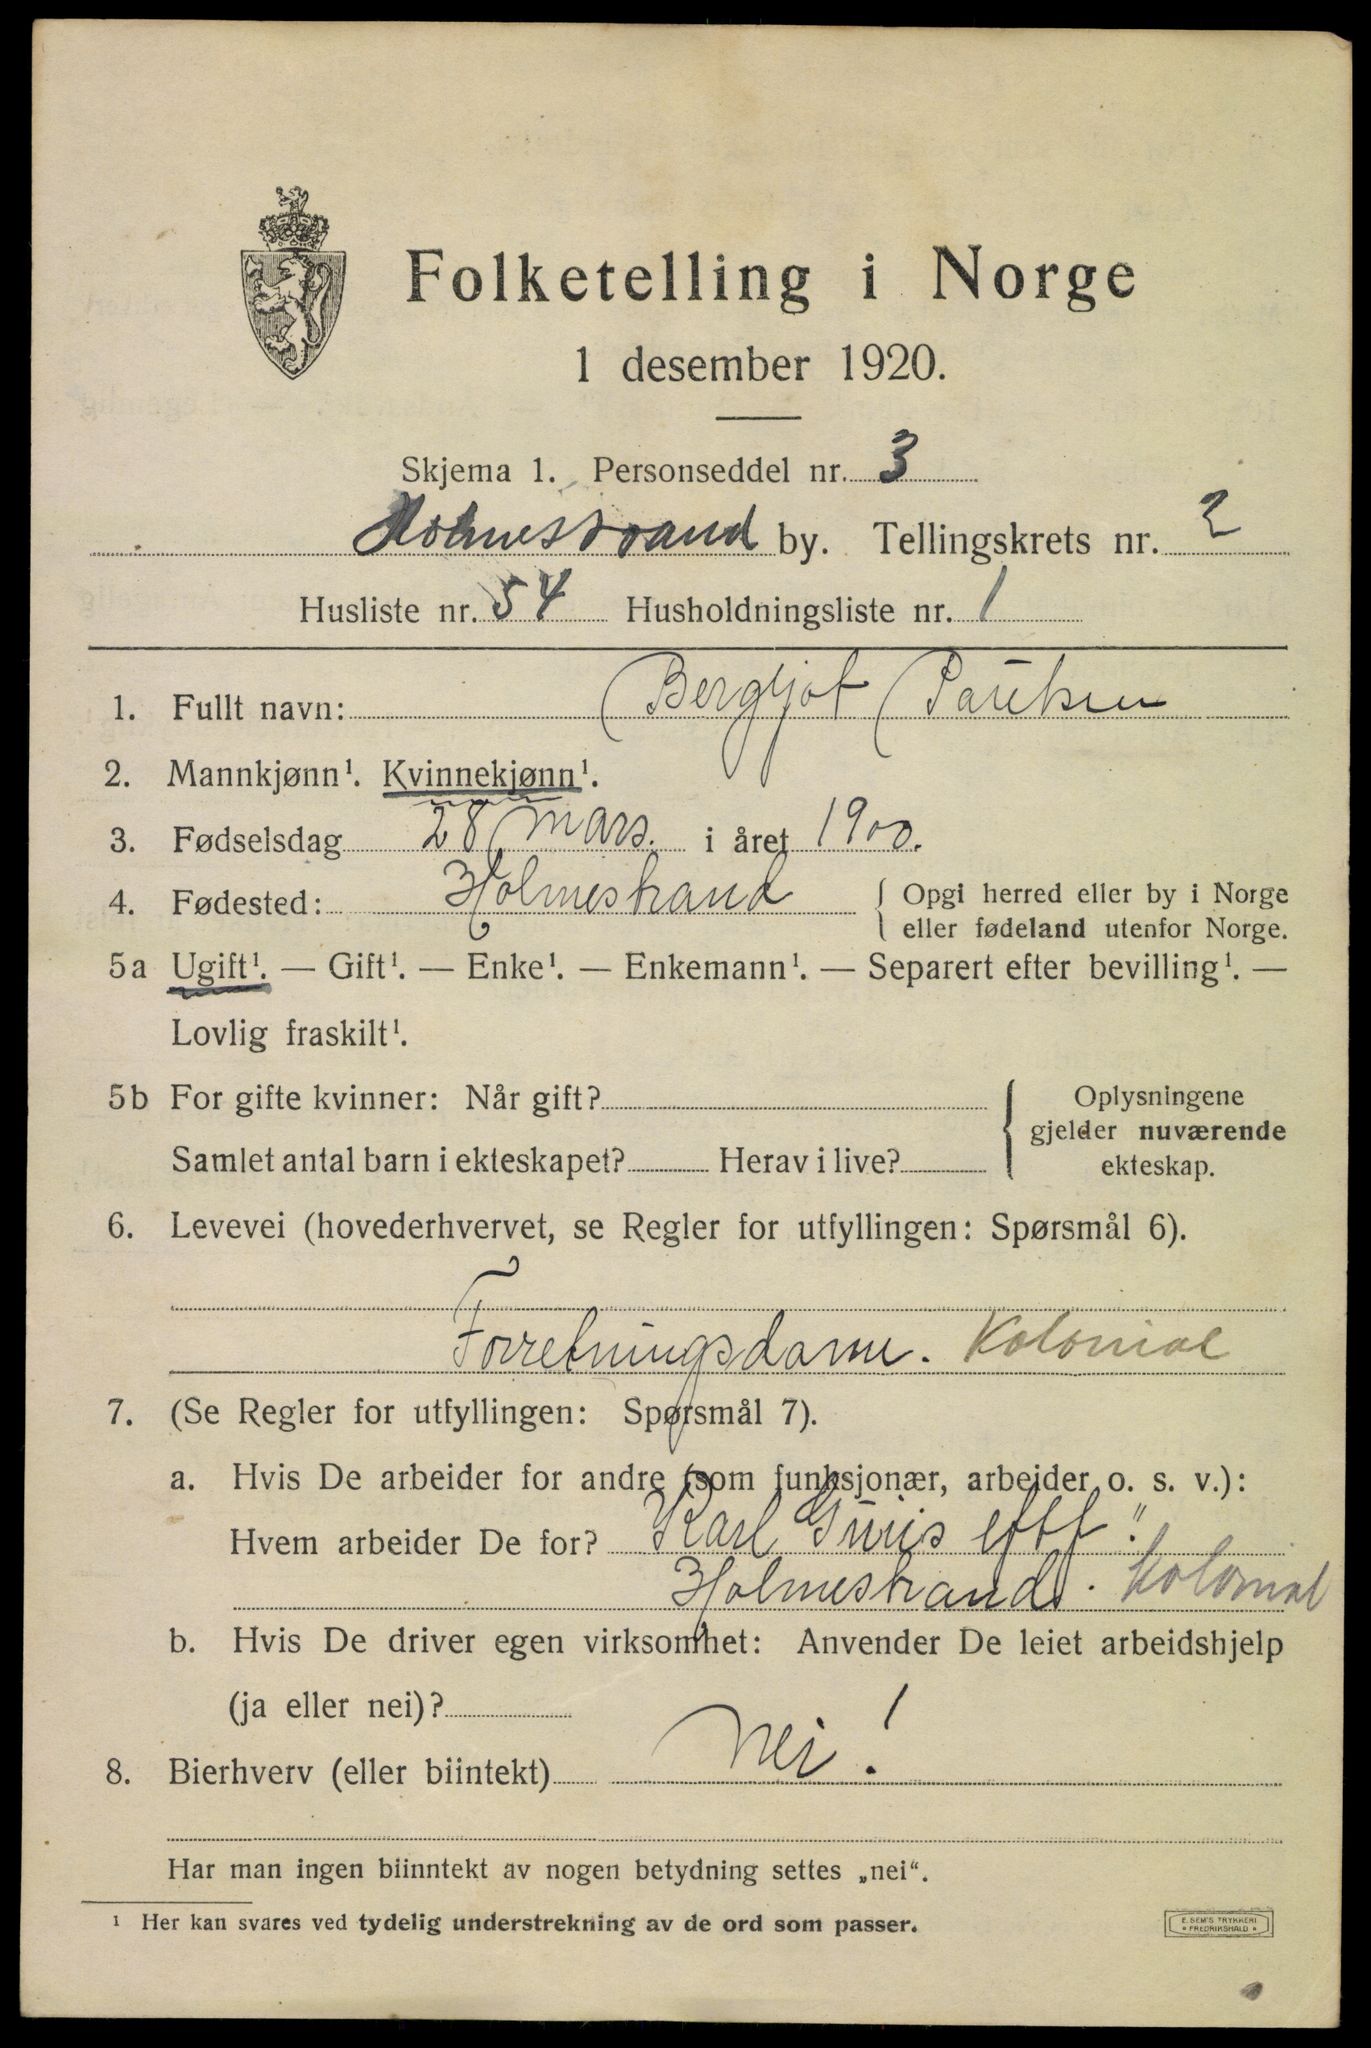 Folketelling i Norge
1 desember 1920.
Skjema 1. Personseddel nr. 3
Holmestrand by. Tellingskrets nr. 2
Husliste nr. 54 Husholdningsliste nr. 1
1. Fullt navn: Bergljot
2. Mannkjønn¹. Kvinnekjønn¹.
3. Fødselsdag 28 mars. i året 1900.
4. Fødested: Holmestrand { Opgi herred eller by i Norge
eller fødeland utenfor Norge.
5a Ugift¹. — Gift¹. — Enke¹. — Enkemann¹. — Separert efter bevilling¹. —
Lovlig fraskilt¹.
5b For gifte kvinner: Når gift?
Samlet antal barn i ekteskapet? Herav i live?
Oplysningene
gjelder nuværende
ekteskap.
6. Levevei (hovederhvervet, se Regler for utfyllingen: Spørsmål 6).
Forretningsdame. Kolonial
7. (Se Regler for utfyllingen: Spørsmål 7).
a. Hvis De arbeider for andre (som funksjonær, arbeider o. s. v.):
Hvem arbeider De for? Karl eftf.
Holmestrand. Kolonial
b. Hvis De driver egen virksomhet: Anvender De leiet arbeidshjelp
(ja eller nei)?
8. Bierhverv (eller biintekt) nei!
Har man ingen biinntekt av nogen betydning settes „nei“.
¹ Her kan svares ved tydelig understrekning av de ord som passer.
E. SEM'S TRYKKERI
FREDRIKSHALD